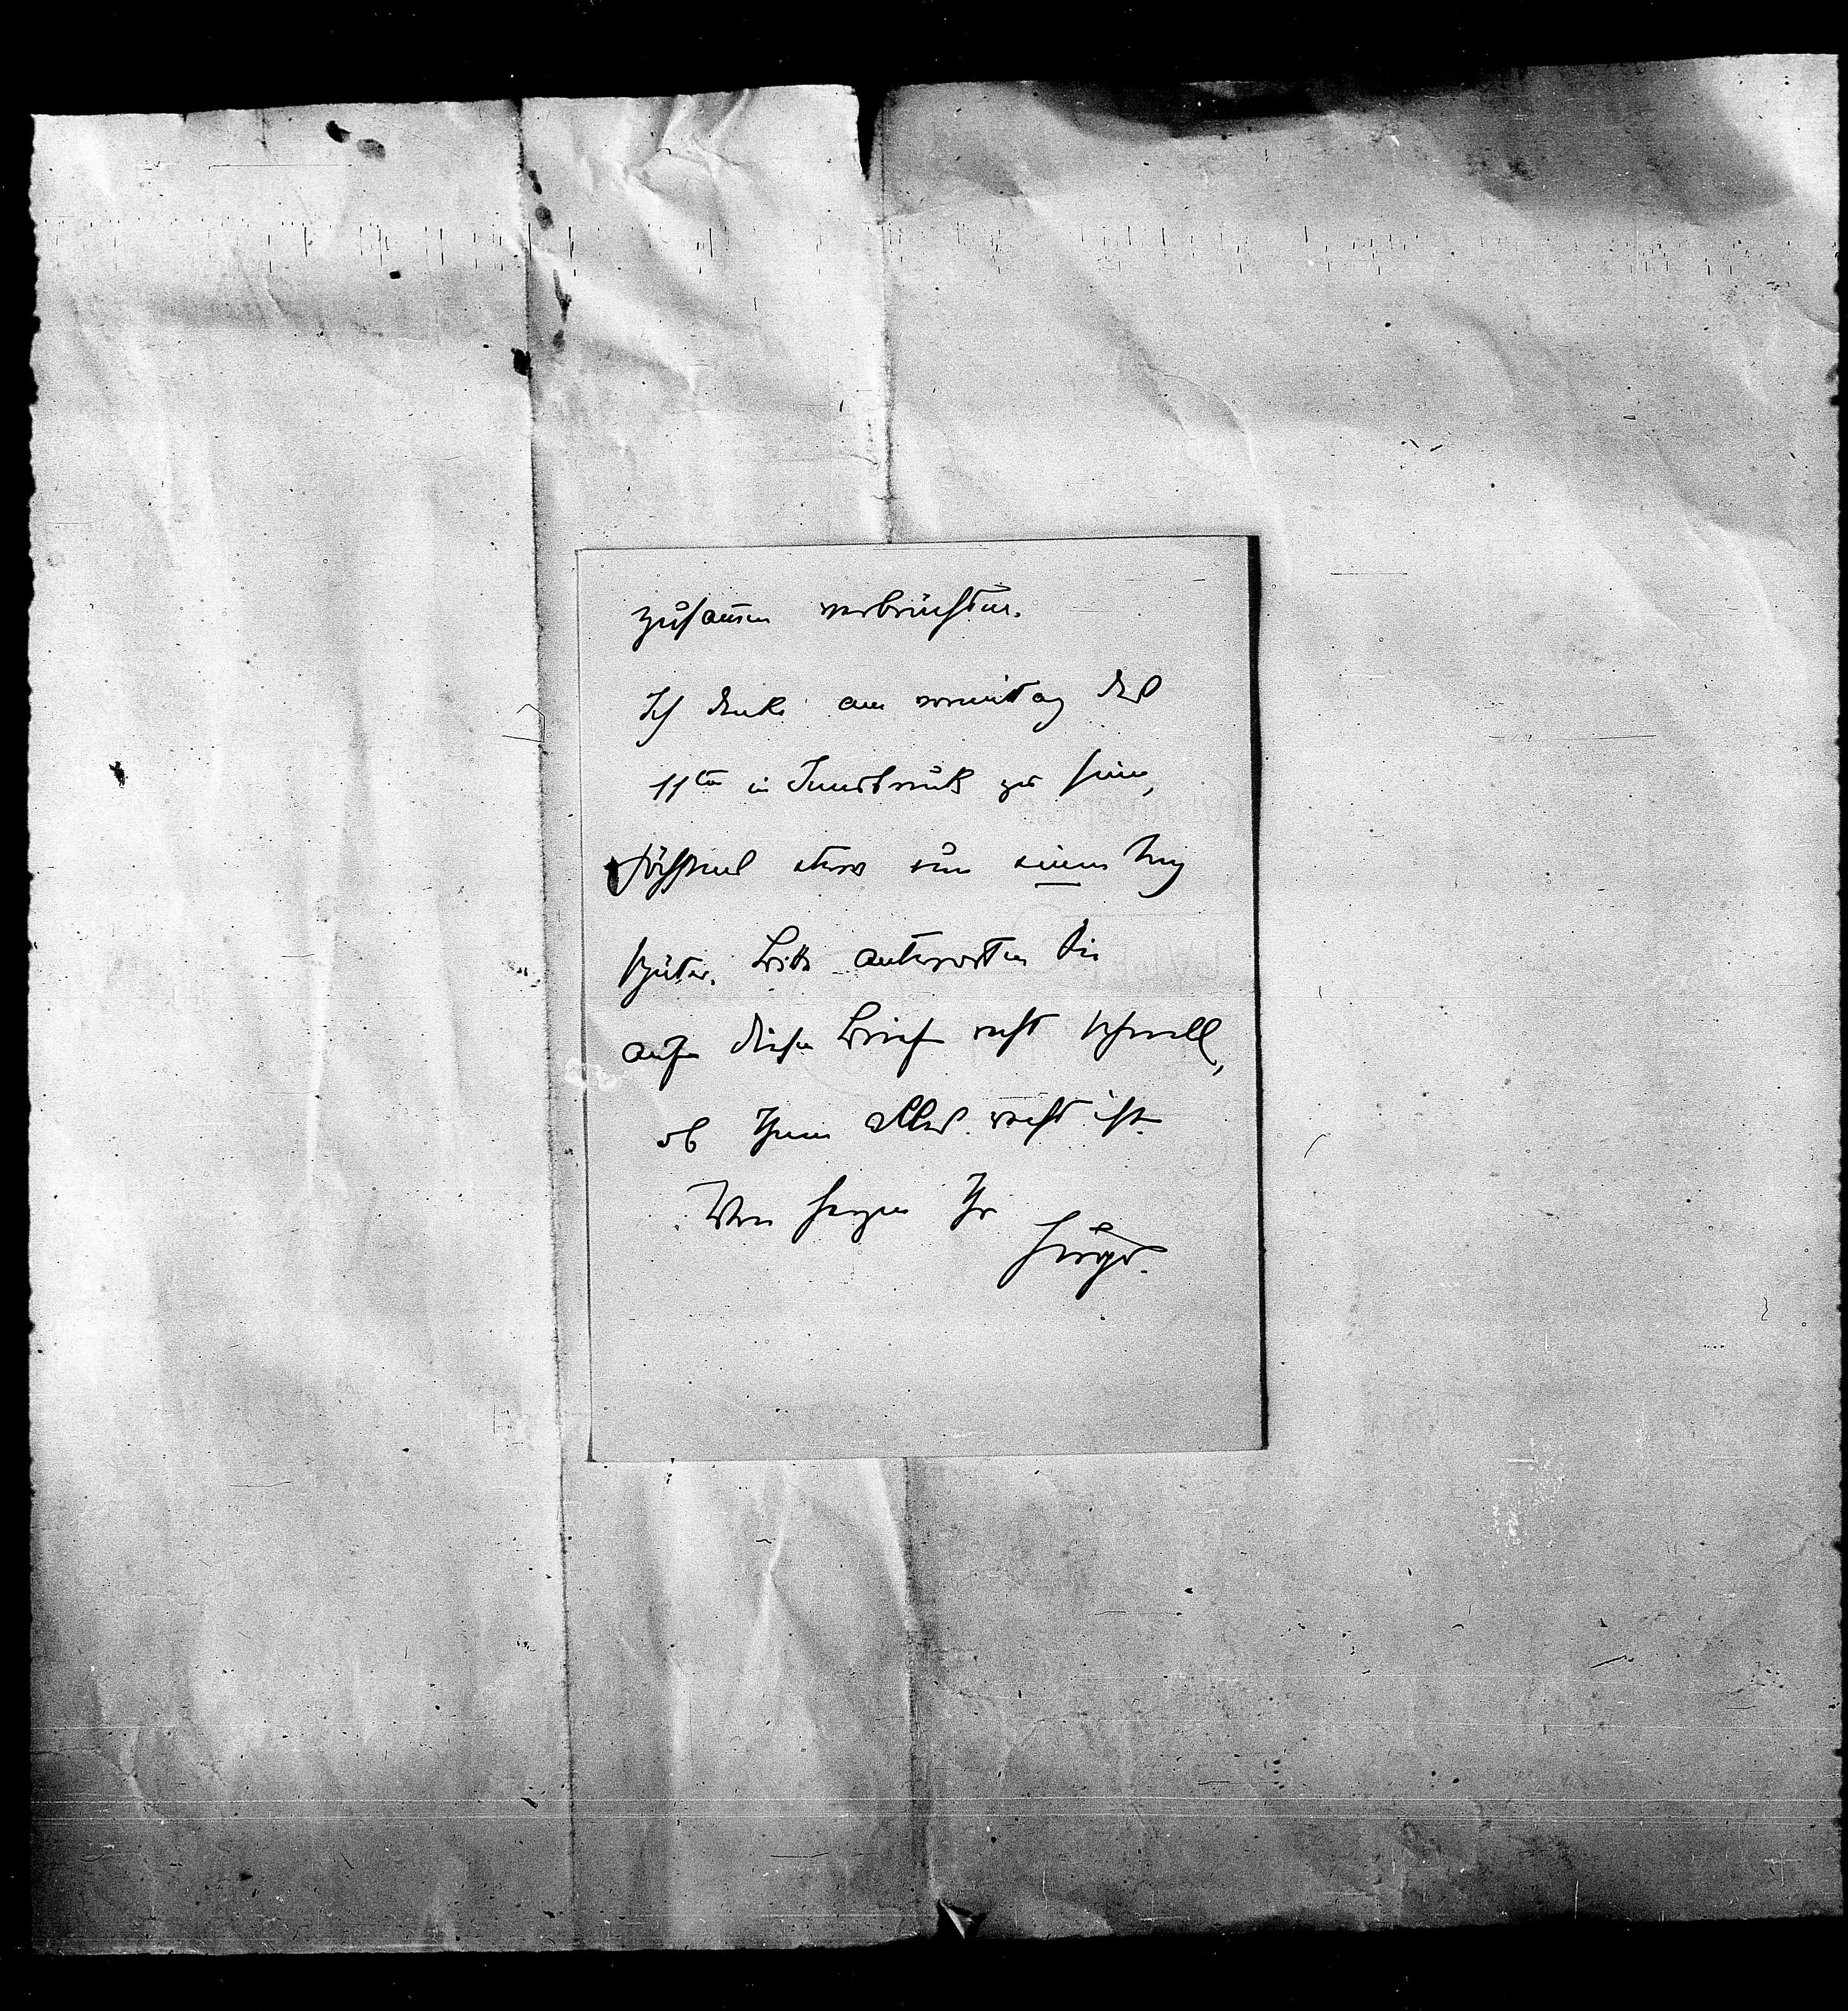 zusammen verbrächten.
Ich denke am vormittag des
11ten in Innsbruck zu sein,
höchstens etwa um einen Tag
später. Bitte antworten Sie
auf diesen Brief recht schnell,
ob Ihnen alles recht ist.
Von Herzen Ihr
Hugo.